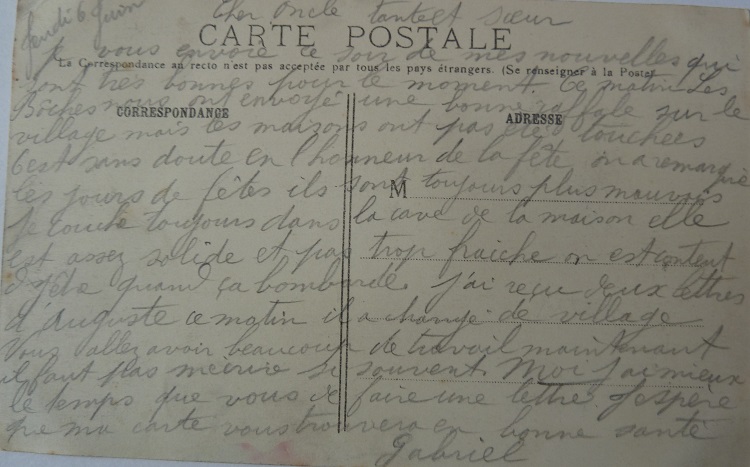 Jeudi 6 Juin
Cher Oncle tante et sœur
CARTE POSTALE
Je vous envoie ce soir de mes nouvelles qui
La Correspondance au recto n'est pas acceptée par tous les pays étrangers. (Se renseigner à la Poste)
sont très bonnes pour le moment. Ce matin Les
Boches nous ont envoyé une bonne raffale sur le
CORRESPONDANCE
ADRESSE
village mais les maisons ont pas été touchées
C'est sans doute en l'honneur de la fête on a remarqué
les jours de fêtes ils sont toujours plus mauvais
M
Je couche toujours dans la cave de la maison elle
est assez solide et pas trop fraiche on est content
d'y être quand ça bombarde. J'ai reçu deux lettres
d'Auguste ce matin il a changé de village
Vous allez avoir beaucoup de travail maintenant
il faut pas mecrire si souvent. Moi j'ai mieux
le temps que vous de faire une lettre. J'espère
que ma carte vous trouvera en bonne santé
Gabriel